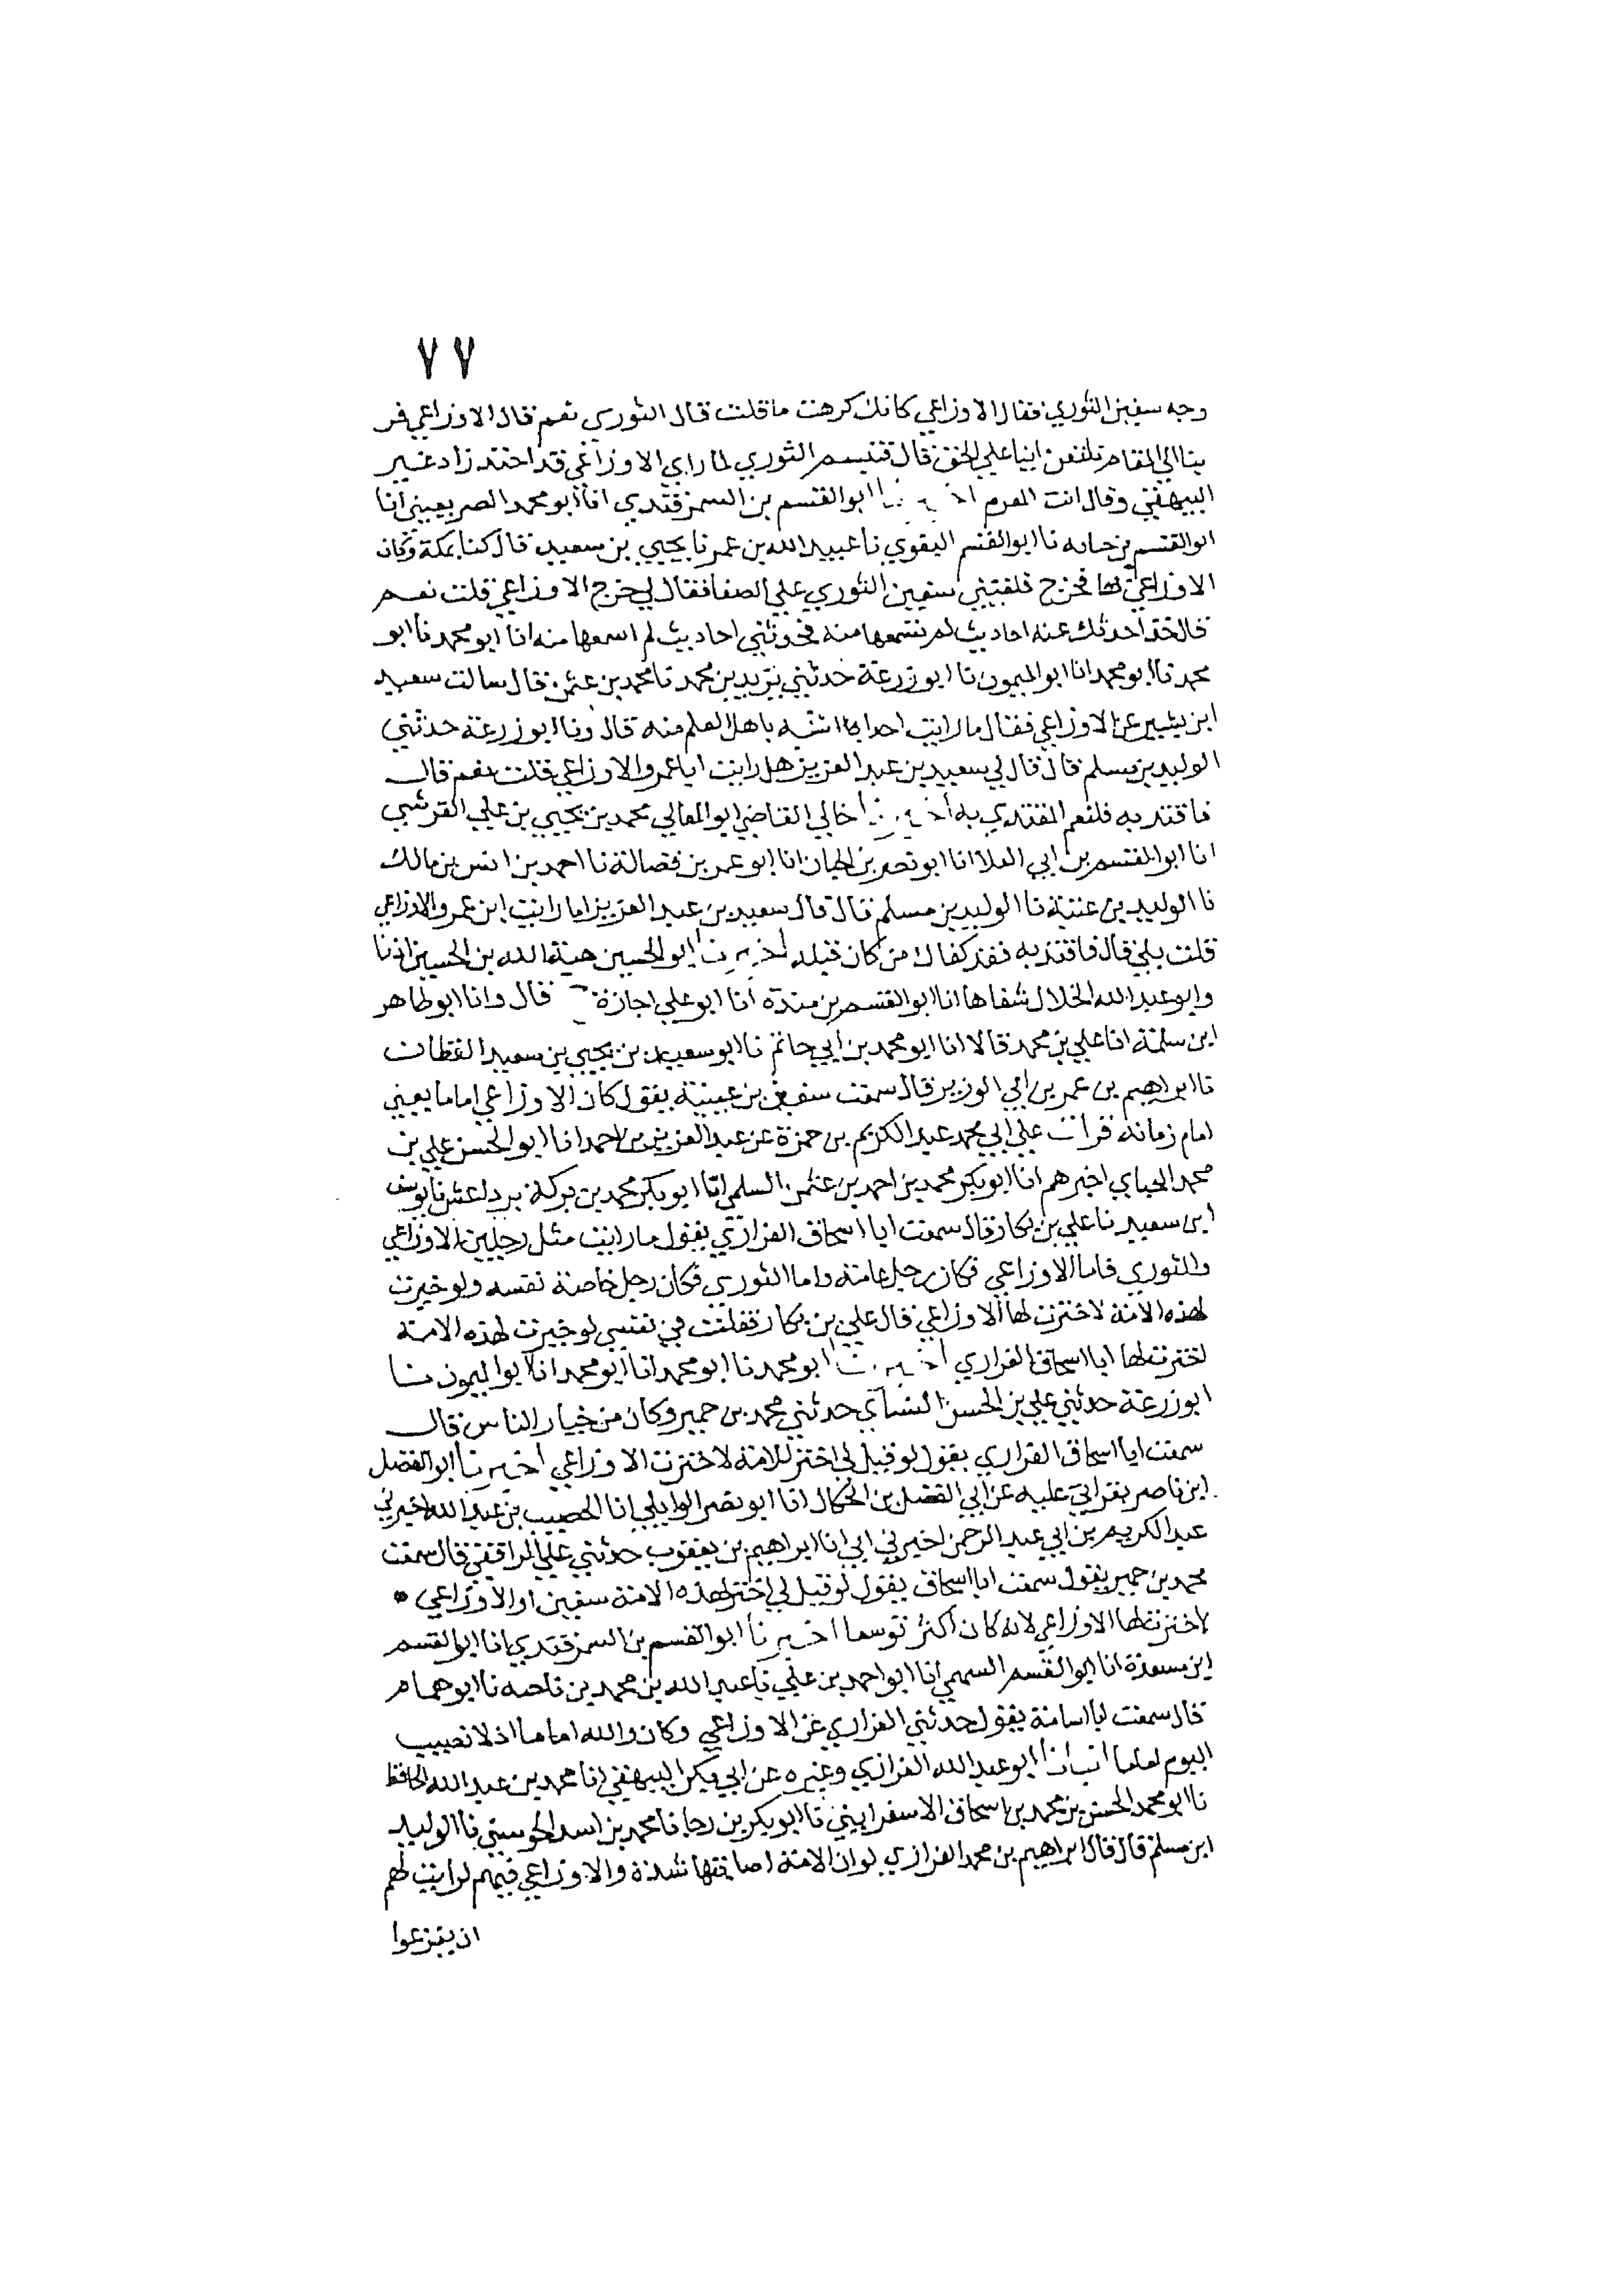 ٧٧
وجه سفين الثوري فقال الاوزاعي كانك كرهت ما قلت قال الثوري نعم قال الاوزاعي قر
بنا الي المقام نلتعن اينا علي الحق قال فتبسم الثوري لما راي الاوزاعي قد احتد زاد غير
البيهقي وقال انت المقدم اخبرنا ابو القسم بن السمرقندي انا ابو محمد الصريفيني انا
ابو القسم بن حبابه نا ابو القسم البغوي نا عبيد الله بن عمر نا يحيي بن سعيد قال كنا بمكة وكان
الاوزاعي بها فخرج فلقيني سفين الثوري علي الصفا فقال لي خرج الاوزاعي قلت نعم
قال قد احدثك عنه احاديث لم تسمعها منه فحدثني احاديث لم اسمعها منه انا ابو محمد نا ابو
محمد نا ابو محمد انا ابو الميمون نا ابو زرعة حدثني يزيد بن محمد نا محمد بن عثمن قال سالت سعيد
ابن بشير عن الاوزاعي فقال ما رايت احدا اشبه باهل العلم منه قال ونا ابو زرعة حدثني
الوليد بن مسلم قال قال لي سعيد بن عبد العزيز هل رايت ابا عمرو الاوزاعي قلت نعم قال
فاقتد به فلنعم المقتدي به اخبرنا خالي القاضي ابو المعالي محمد بن يحيي بن علي القرشي
انا ابو القسم بن ابي العلا انا ابو نصر بن الجبان انا ابو عمر بن فضالة نا احمد بن انس بن مالك
نا الوليد بن عتبة نا الوليد بن مسلم قال قال سعيد بن عبد العزيز اما رايت ابن عمرو الاوزاعي
قلت بلي قال فاقتد به فقد كفاك من كان قبله اخبرنا ابو الحسين هبة الله بن الحسين اذنا
وابو عبد الله الخلال شفاها انا ابو القسم بن مندة انا ابو علي اجازة ح قال وانا ابو طاهر
ابن سلمة انا علي بن محمد قالا انا ابو محمد بن ابي حاتم نا ابو سعيد بن يحيي بن سعيد القطان
نا ابراهيم بن عمر بن ابي الوزير قال سمعت سفين بن عيينة يقول كان الاوزاعي اماما يعني
امام زمانه قرات علي ابي محمد عبد الكريم بن حمزة عن عبد العزيز بن احمد انا ابو الحسن علي بن
محمد الحياي اخبرهم انا ابو بكر محمد بن احمد بن عثمن السلمي انا ابو بكر محمد بن بركة برداعش نا يوسف
ابن سعيد نا علي بن بكار قال سمعت ابا اسحاق الفزاري يقول ما رايت مثل رجلين الاوزاعي
والثوري فاما الاوزاعي فكان رجل عامة واما الثوري فكان رجل خاصة نفسه ولو خيرت
لهذه الامة لاخترت لها الاوزاعي قال علي بن بكار فقلت في نفسي لو خيرت لهذه الامة
لخترت لها ابا اسحاق الفزاري اخبرنا ابو محمد نا ابو محمد انا ابو محمد انا ابو الميمون نا
ابو زرعة حدثني علي بن الحسن النسائي حدثني محمد بن حمير وكان من خيار الناس قال
سمعت ابا اسحاق الفزاري يقول لو قيل لي اختر للامة لاخترت الاوزاعي اخبرنا ابو الفضل
ابن ناصر بقراتي عليه عن ابي الفضل بن الحكاك انا ابو نصر الوايلي انا الخصيب بن عبد الله اخبرني
عبد الكريم بن ابي عبد الرحمن اخبرني ابي انا ابراهيم بن يعقوب حدثني علي الرافقي قال سمعت
محمد بن حمير يقول سمعت ابا اسحاق يقول لو قيل لي اختر لهذه الامة سفين او الاوزاعي •
لاخترت لها الاوزاعي لانه كان اكثر توسعا اخبرنا ابو القسم بن السمرقندي انا ابو القسم
ابن مسعدة انا ابو القسم السهمي انا ابو احمد بن علي نا عبد الله بن محمد بن ناحية نا ابو همام
قال سمعت ابا اسامة يقول حدثني الفزاري عن الاوزاعي وكان والله اماما اذ لا نصيب
اليوم اماما انبانا ابو عبد الله الفراوي وغيره عن ابي بكر البيهقي انا محمد بن عبد الله الحافظ
نا ابو محمد الحسن بن محمد بن اسحاق الاسفراييني نا ابو بكر بن رجا نا محمد بن اسد الخوشي نا الوليد
ابن مسلم قال قال ابراهيم بن محمد الفزاري لو ان الامة اصابتها شدة والاوزاعي فيهم لرايت لهم
ان يفزعوا